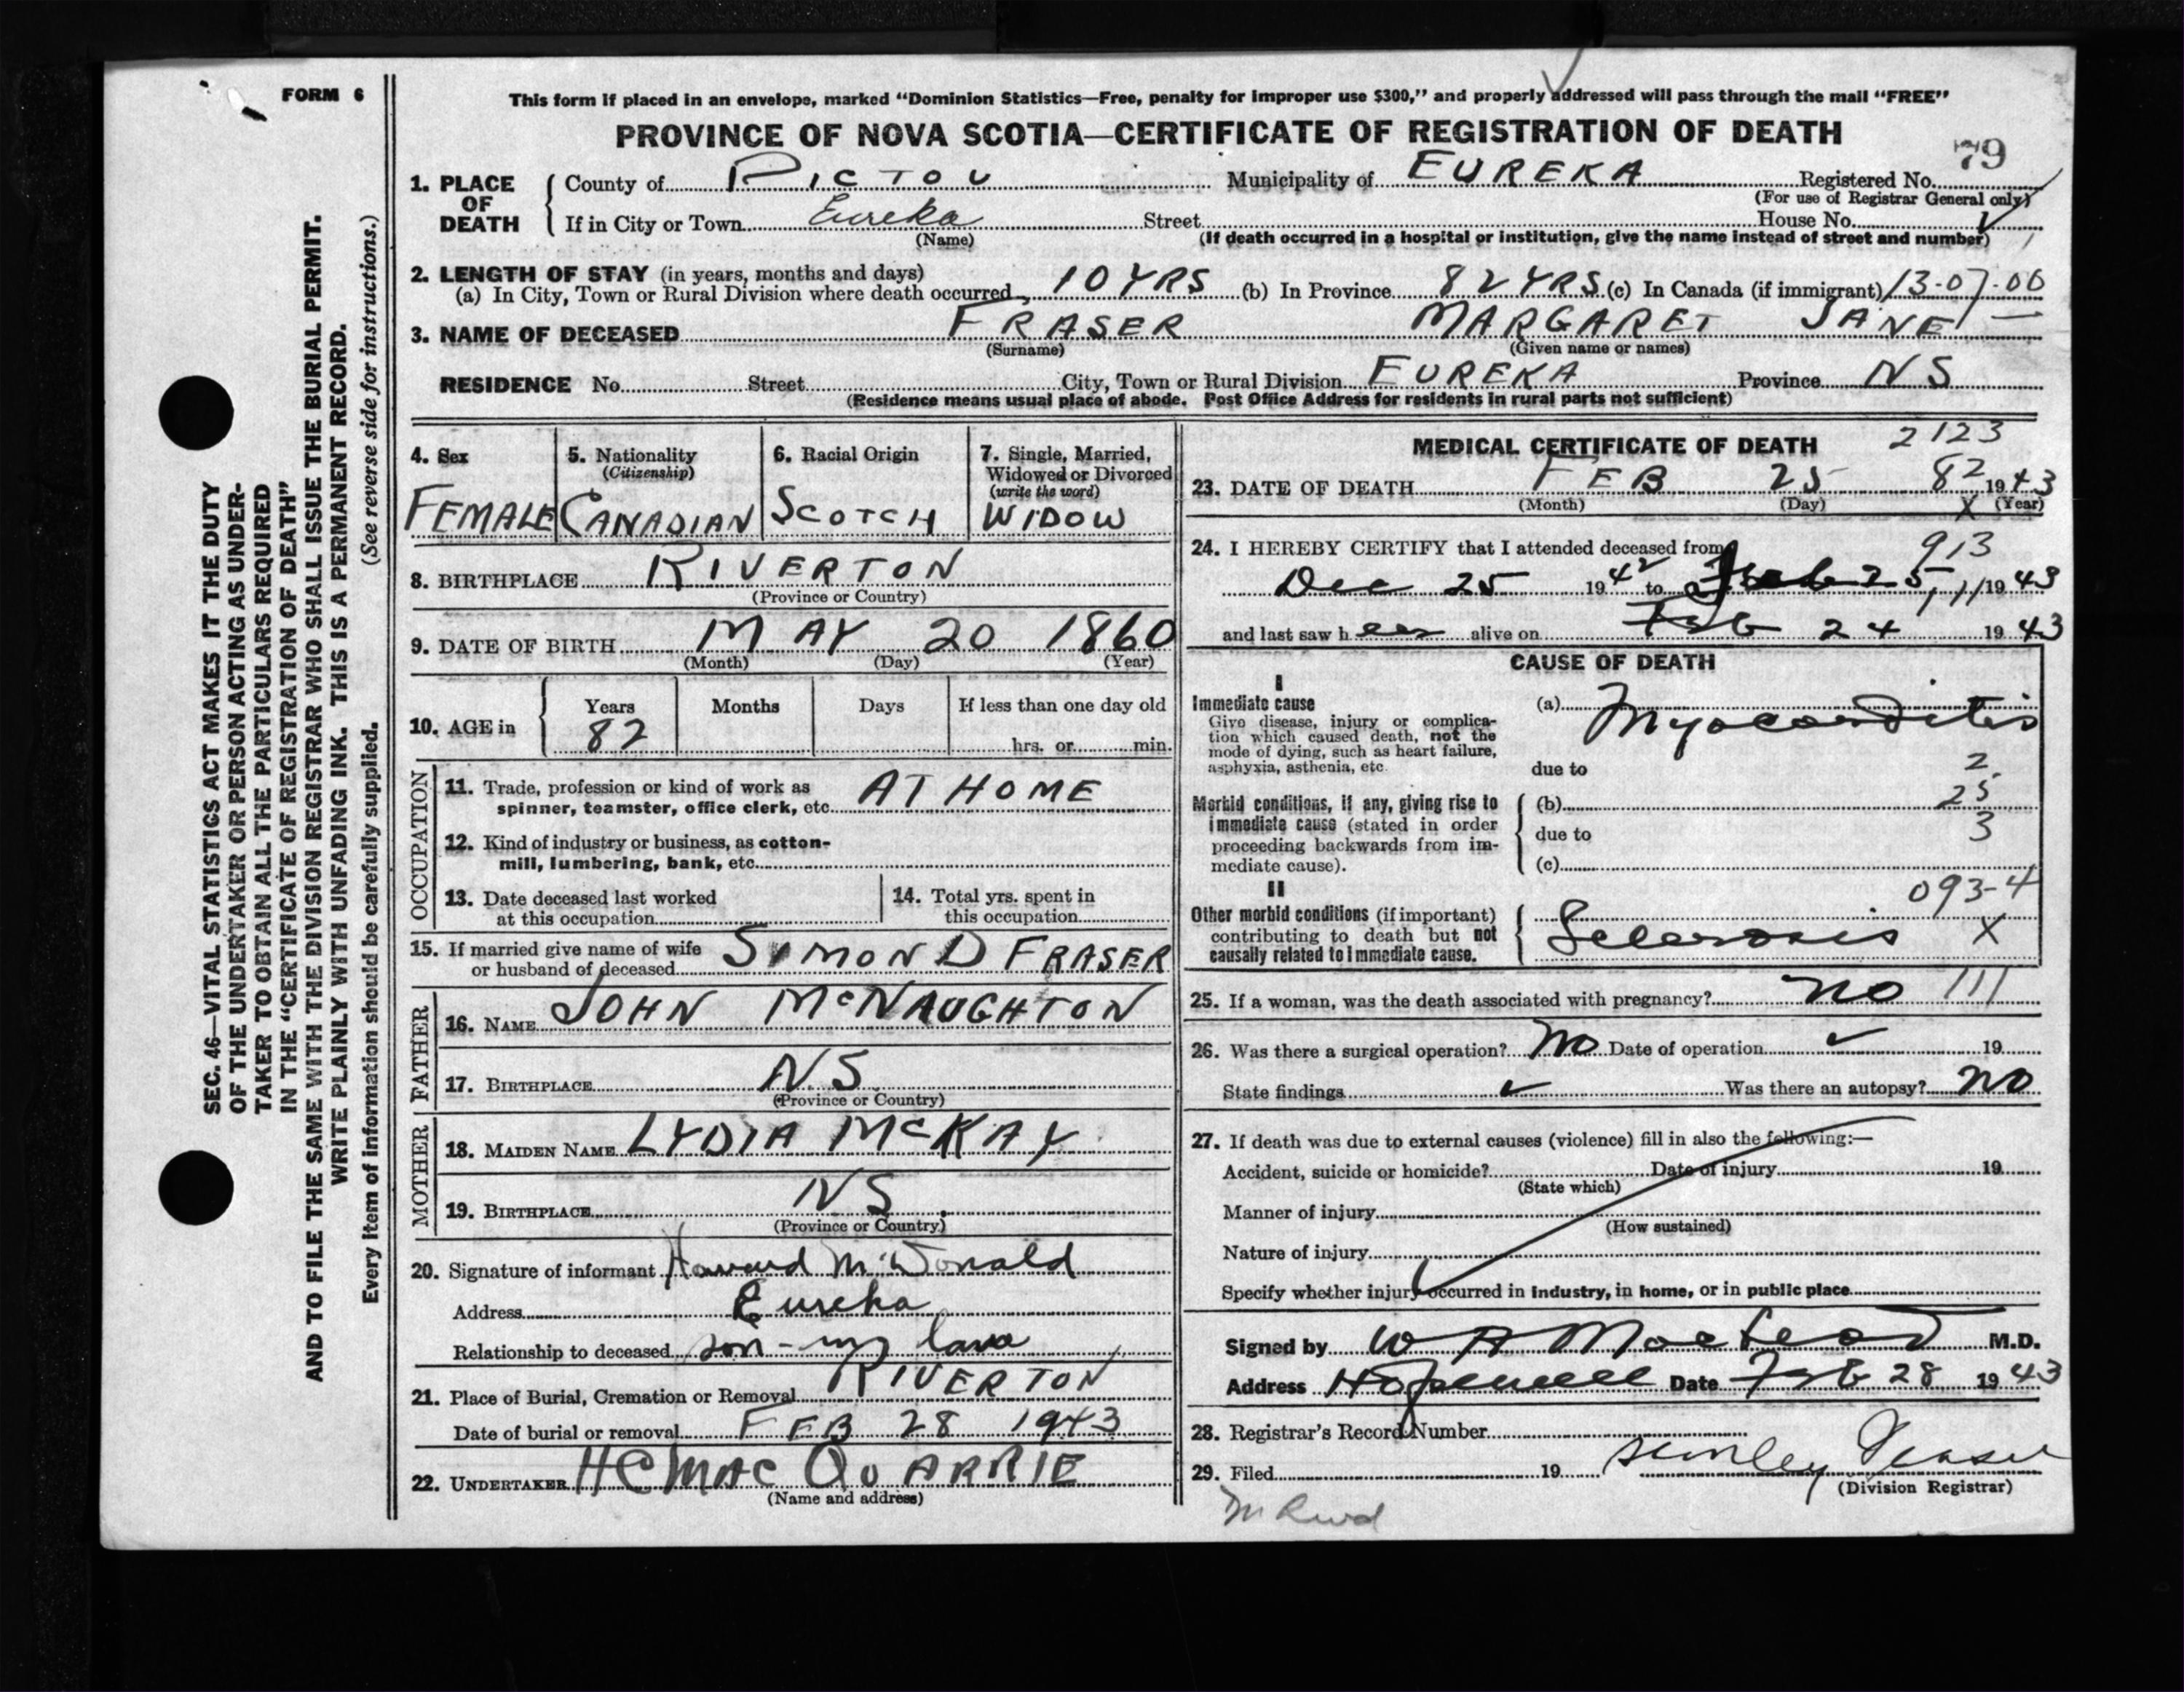 FORM 6
This form if placed in an envelope, marked “Dominion Statistics—Free, penalty for improper use $300,” and properly addressed will pass through the mail “FREE”
PROVINCE OF NOVA SCOTIA—CERTIFICATE OF REGISTRATION OF DEATH
79
1. PLACE OF DEATH
County of PICTOU Municipality of EUREKA Registered No.
(For use of Registrar General only)
If in City or Town Eureka Street House No.
(Name) (If death occurred in a hospital or institution, give the name instead of street and number)
2. LENGTH OF STAY (in years, months and days)
(a) In City, Town or Rural Division where death occurred 10 YRS (b) In Province 82 YRS (c) In Canada (if immigrant) 13-07-00
3. NAME OF DECEASED FRASER MARGARET JANE
(Surname) (Given name or names)
RESIDENCE No. Street City, Town or Rural Division EUREKA Province NS
(Residence means usual place of abode. Post Office Address for residents in rural parts not sufficient)
SEC. 46—VITAL STATISTICS ACT MAKES IT THE DUTY
OF THE UNDERTAKER OR PERSON ACTING AS UNDER-
TAKER TO OBTAIN ALL THE PARTICULARS REQUIRED
IN THE “CERTIFICATE OF REGISTRATION OF DEATH”
AND TO FILE THE SAME WITH THE DIVISION REGISTRAR WHO SHALL ISSUE THE BURIAL PERMIT.
WRITE PLAINLY WITH UNFADING INK. THIS IS A PERMANENT RECORD.
Every item of information should be carefully supplied. (See reverse side for instructions.)
4. Sex
FEMALE
5. Nationality
(Citizenship)
CANADIAN
6. Racial Origin
SCOTCH
7. Single, Married,
Widowed or Divorced
(write the word)
WIDOW
8. BIRTHPLACE RIVERTON
(Province or Country)
9. DATE OF BIRTH MAY 20 1860
(Month) (Day) (Year)
10. AGE in
Years Months Days If less than one day old
82 hrs. or min.
OCCUPATION
11. Trade, profession or kind of work as
spinner, teamster, office clerk, etc. AT HOME
12. Kind of industry or business, as cotton-
mill, lumbering, bank, etc.
13. Date deceased last worked
at this occupation
14. Total yrs. spent in
this occupation
15. If married give name of wife
or husband of deceased SIMON D FRASER
FATHER
16. NAME JOHN McNAUGHTON
17. BIRTHPLACE NS
(Province or Country)
MOTHER
18. MAIDEN NAME LYDIA McKAY
19. BIRTHPLACE NS.
(Province or Country)
20. Signature of informant Howard McDonald
Address Eureka
Relationship to deceased son-in law
21. Place of Burial, Cremation or Removal RIVERTON
Date of burial or removal FEB 28 1943
22. UNDERTAKER HC MAC QUARRIE
(Name and address)
MEDICAL CERTIFICATE OF DEATH 2123
23. DATE OF DEATH FEB 25 82 1943
(Month) (Day) X (Year)
24. I HEREBY CERTIFY that I attended deceased from 913
Dec 25 1942 to Feb 25, 1943
and last saw her alive on Feb 24 1943
CAUSE OF DEATH
I
Immediate cause
Give disease, injury or complica-
tion which caused death, not the
mode of dying, such as heart failure,
asphyxia, asthenia, etc.
(a) Myocarditis
due to 2
Morbid conditions, if any, giving rise to
immediate cause (stated in order
proceeding backwards from im-
mediate cause).
(b) 25
due to 3
(c)
II
Other morbid conditions (if important)
contributing to death but not
causally related to immediate cause.
093-4
Sclerosis X
25. If a woman, was the death associated with pregnancy? no 111
26. Was there a surgical operation? No Date of operation 19
State findings Was there an autopsy? no
27. If death was due to external causes (violence) fill in also the following:—
Accident, suicide or homicide? Date of injury 19
(State which)
Manner of injury
(How sustained)
Nature of injury
Specify whether injury occurred in industry, in home, or in public place
Signed by W A MacLeod M.D.
Address Hopewell Date Feb 28 1943
28. Registrar's Record Number
29. Filed 19
(Division Registrar)